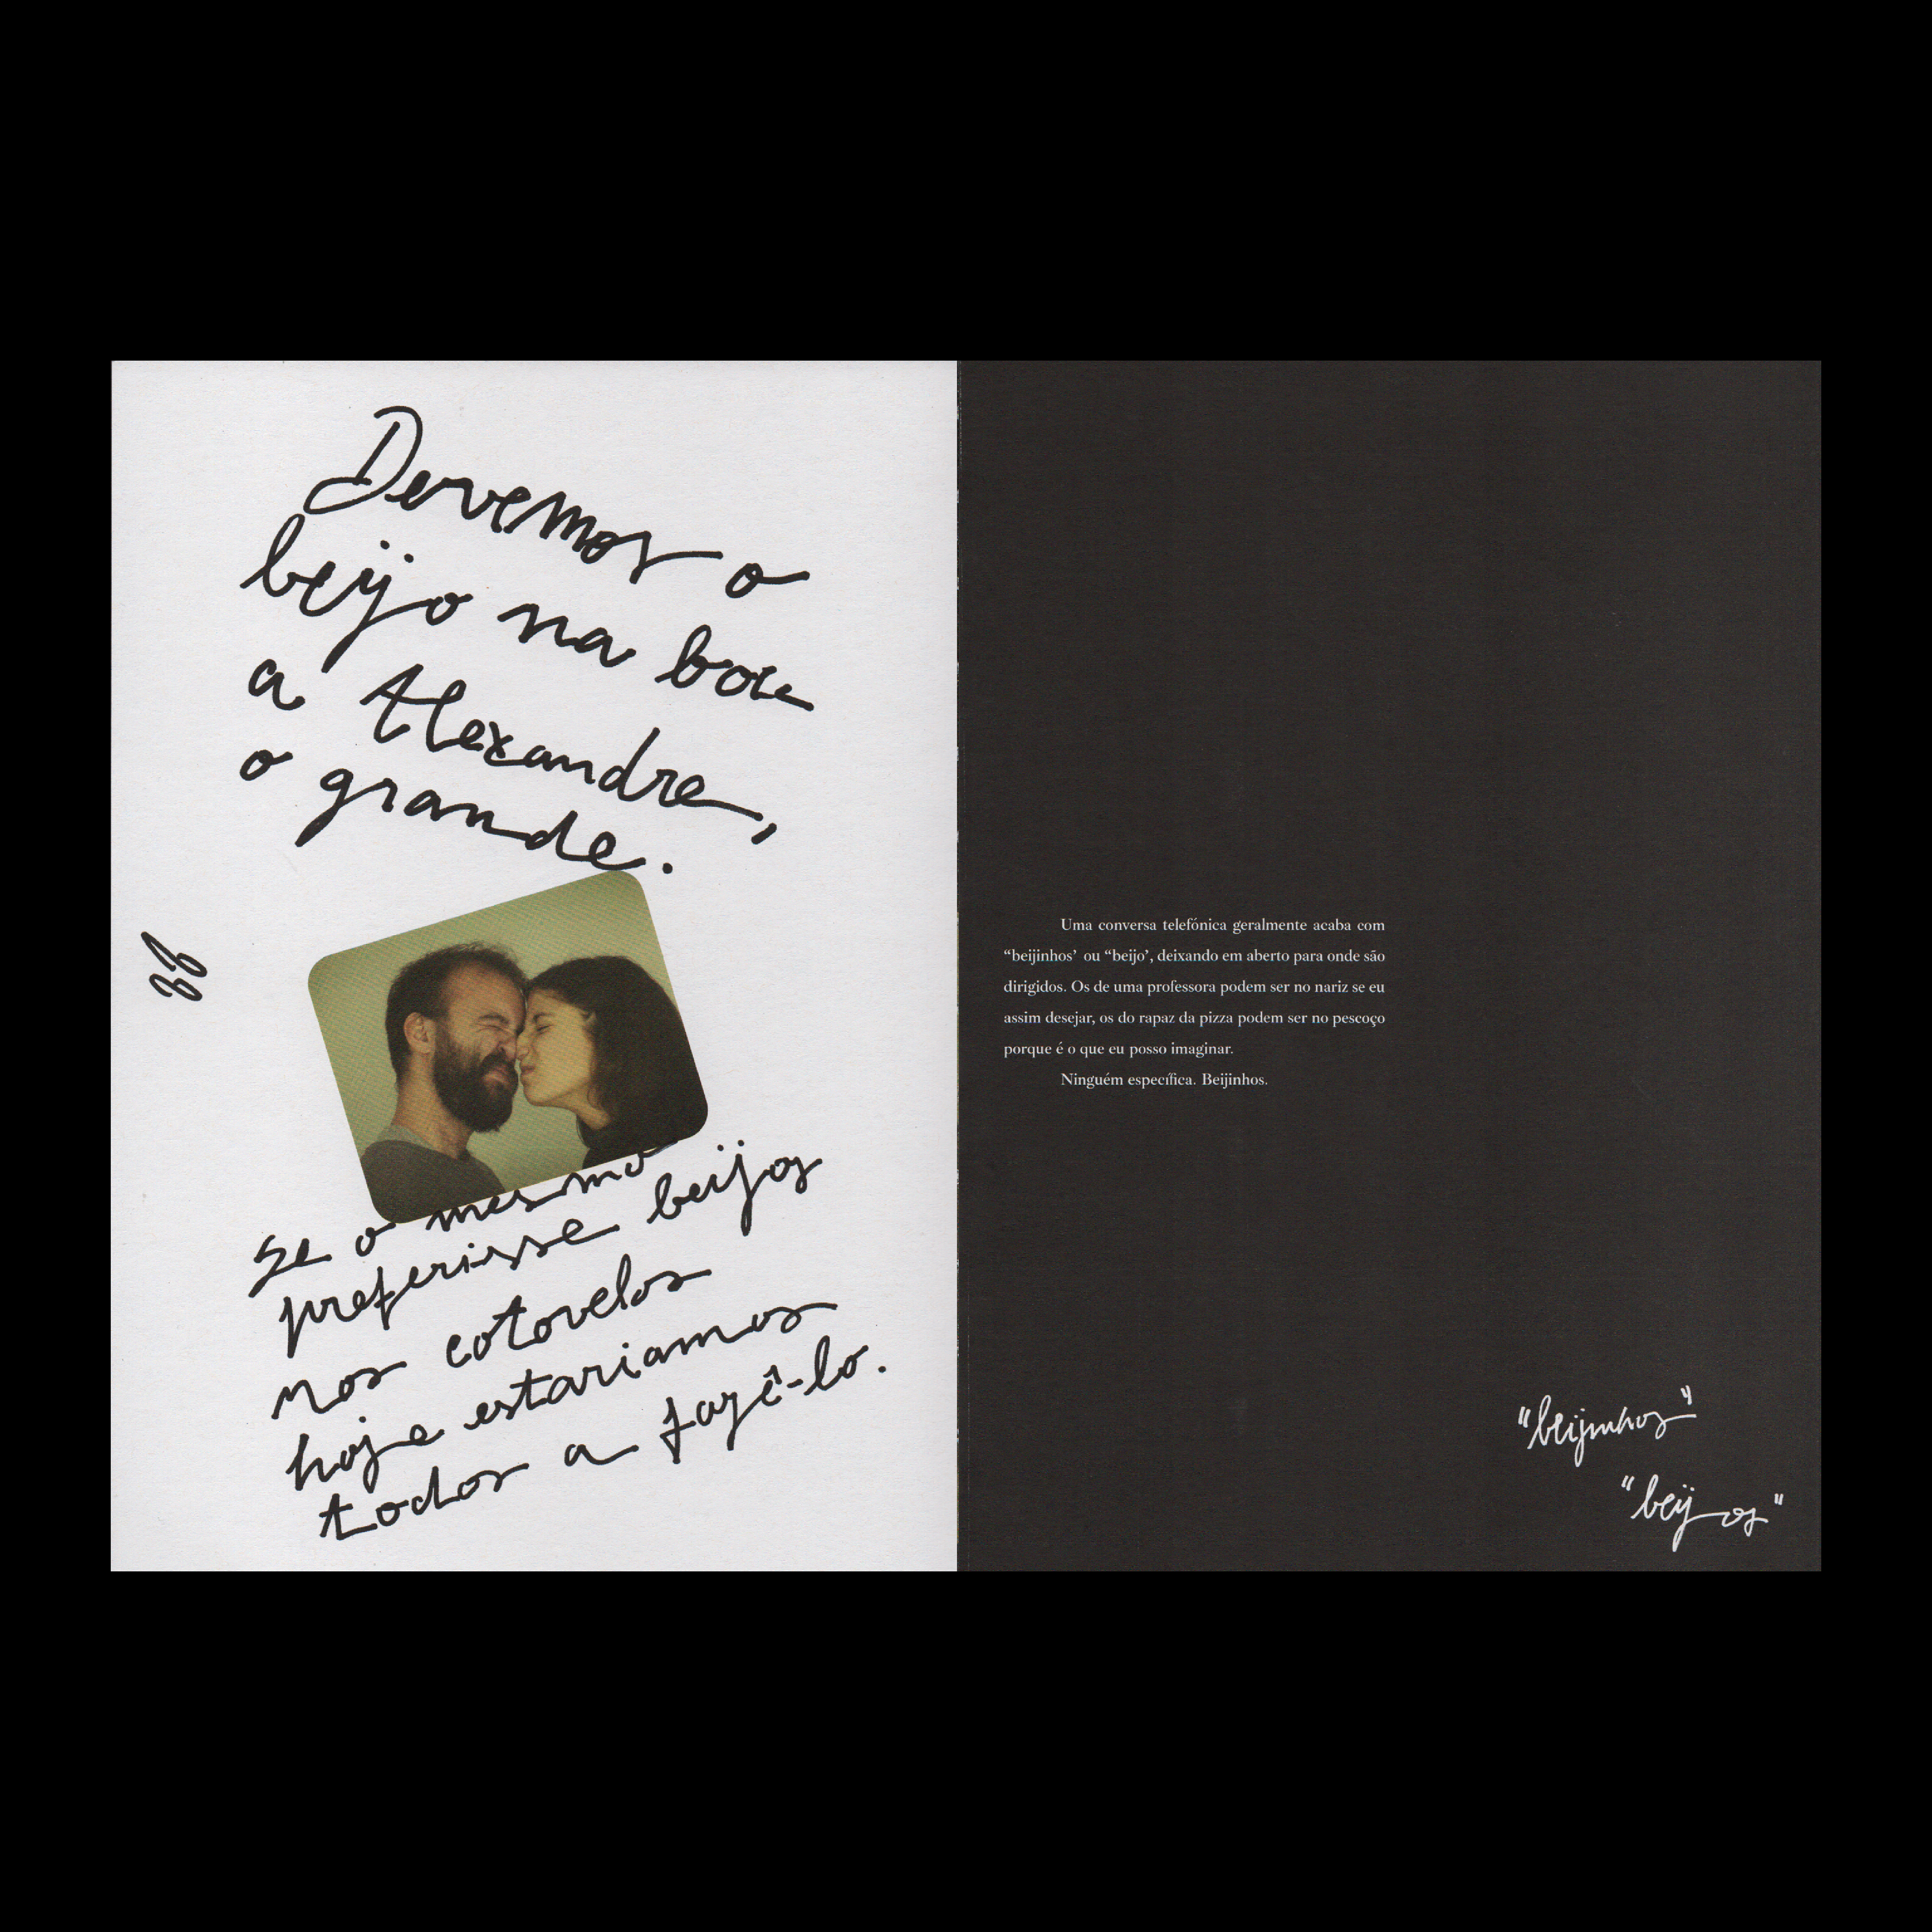 Devemos o
beijo na boca
a Alexandre,
o grande.
Se o mesmo
preferisse beijos
nos cotovelos
hoje estariamos
todos a fazê-lo.
Uma conversa telefónica geralmente acaba com
“beijinhos’ ou “beijo’, deixando em aberto para onde são
dirigidos. Os de uma professora podem ser no nariz se eu
assim desejar, os do rapaz da pizza podem ser no pescoço
porque é o que eu posso imaginar.
Ninguém específica. Beijinhos.
"beijinhos"
"beijos"